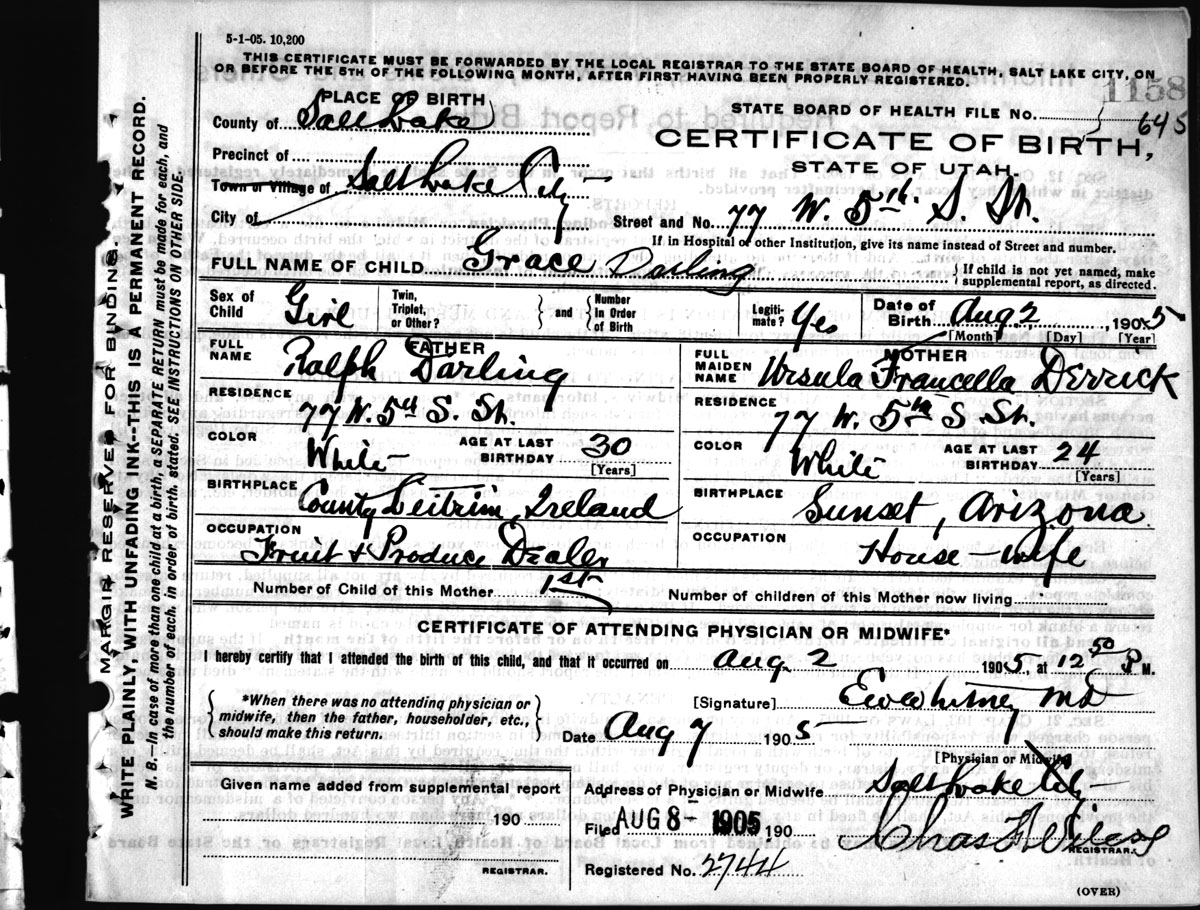 5-1-05. 10,200
THIS CERTIFICATE MUST BE FORWARDED BY THE LOCAL REGISTRAR TO THE STATE BOARD OF HEALTH, SALT LAKE CITY, ON
OR BEFORE THE 5TH OF THE FOLLOWING MONTH, AFTER FIRST HAVING BEEN PROPERLY REGISTERED.
1158
PLACE OF BIRTH
County of Salt Lake
STATE BOARD OF HEALTH FILE No. 645
CERTIFICATE OF BIRTH,
STATE OF UTAH.
Precinct of
Town or Village of Salt Lake City
City of
Street and No. 77 W. 5th. S. St.
If in Hospital or other Institution, give its name instead of Street and number.
FULL NAME OF CHILD Grace Darling
If child is not yet named, make supplemental report, as directed.
Sex of Child Girl
Twin, Triplet, or Other?
and
Number In Order of Birth
Legitimate? Yes
Date of Birth Aug 2, 1905
[Month] [Day] [Year]
FATHER
FULL NAME Ralph Darling
RESIDENCE
77 W. 5th S. St.
COLOR White
AGE AT LAST BIRTHDAY 30
[Years]
BIRTHPLACE
County Leitrim, Ireland
OCCUPATION
Fruit & Produce Dealer
MOTHER
FULL MAIDEN NAME Ursula Francella Derrick
RESIDENCE
77 W. 5th S St.
COLOR White
AGE AT LAST BIRTHDAY 24
[Years]
BIRTHPLACE
Sunset, Arizona
OCCUPATION
House-wife
Number of Child of this Mother 1st
Number of children of this Mother now living
CERTIFICATE OF ATTENDING PHYSICIAN OR MIDWIFE*
I hereby certify that I attended the birth of this child, and that it occurred on Aug. 2 1905, at 12 50 P M.
*When there was no attending physician or
midwife, then the father, householder, etc.,
should make this return.
[Signature] MD
Date Aug 7 1905
[Physician or Midwife]
Given name added from supplemental report
190
REGISTRAR.
Address of Physician or Midwife Salt Lake City
Filed AUG 8- 1905 190
Chas
REGISTRAR.
Registered No. 2744
(OVER)
MARGIN RESERVED FOR BINDING
WRITE PLAINLY, WITH UNFADING INK--THIS IS A PERMANENT RECORD.
N. B.--In case of more than one child at a birth, a SEPARATE RETURN must be made for each, and
the number of each, in order of birth, stated. SEE INSTRUCTIONS ON OTHER SIDE.